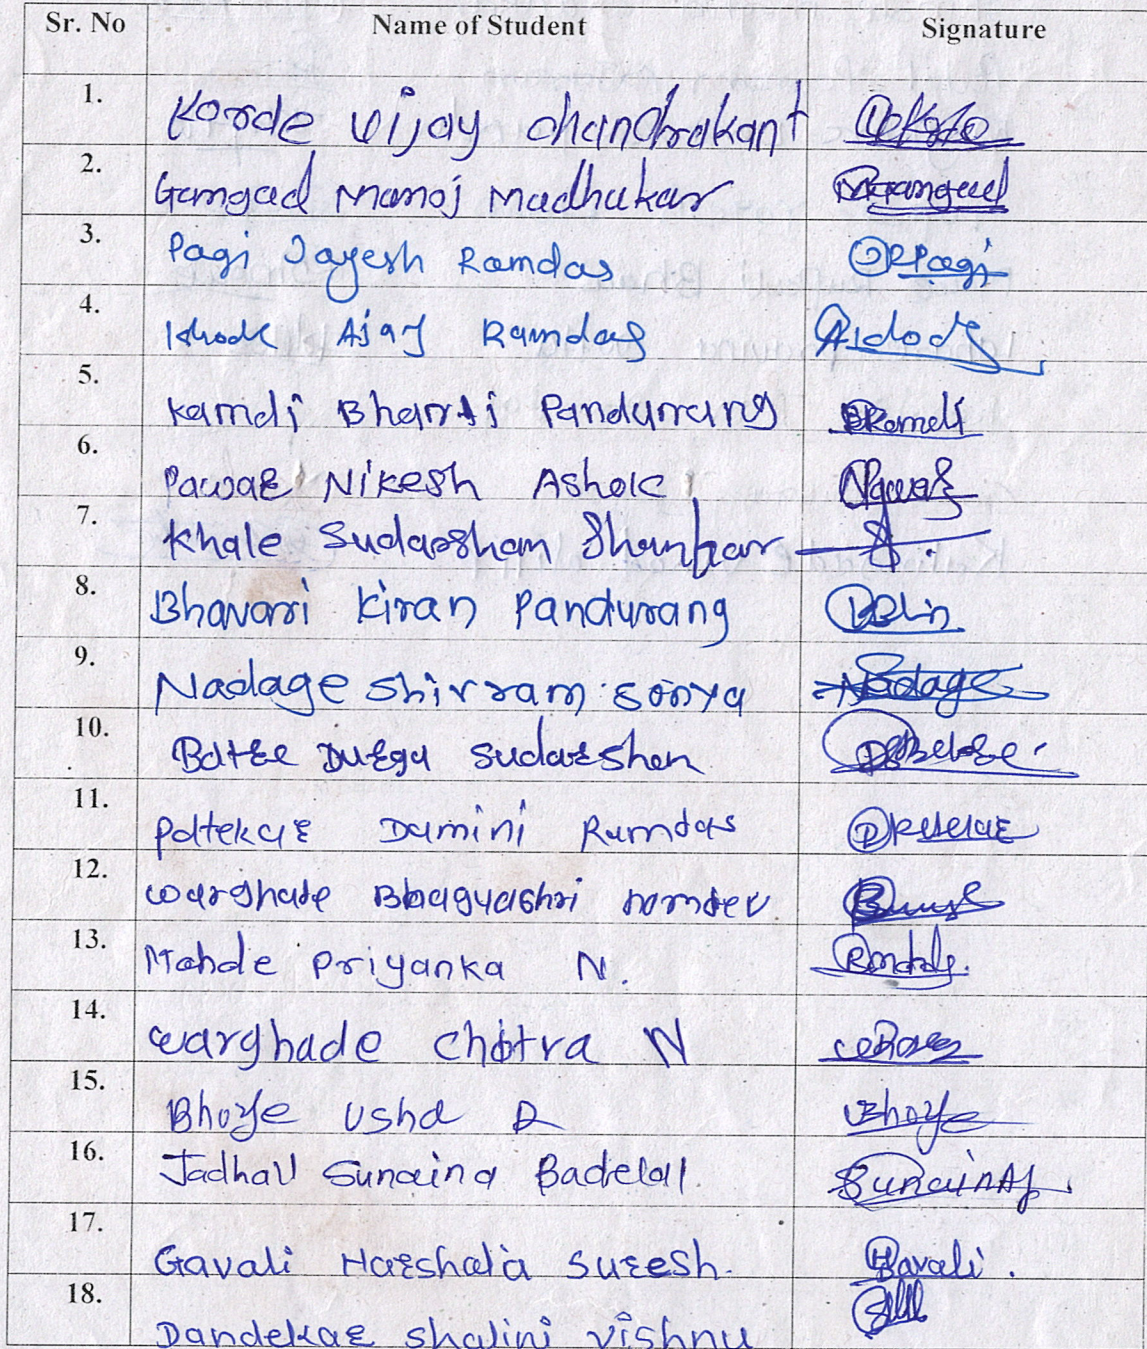 Sr. No Name of Student Signature
1. Korde Vijay Chandrakant
2. Gamgad Manoj Madhukar MGangad
3. Pagi Jayesh Ramdas JRPagi
4. Khodk Ajay Ramdas
5. Kamdi Bharti Pandurang BKamdi
6. Pawar Nikesh Ashok NPawar
7. Khale Sudarshan Shankar
8. Bhavari Kiran Pandurang
9. Nadage Shivram Sonya Nadage
10. Durga Sudarshan
11. Patekar Damini Ramdas
12. Warghade Bhagyashri Namdev
13. Mahde Priyanka N.
14. Warghade Chitra N
15. Bhoye Usha R Bhoye
16. Jadhav Sunaina Badelal Sunaina
17. Gavali Harshala Suresh. HGavali.
18. Dandekar Shalini Vishnu